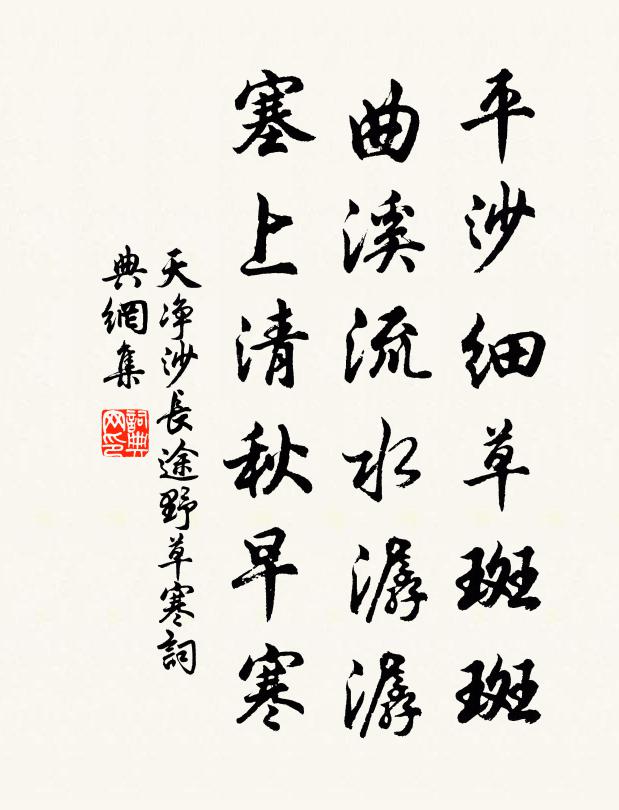 平沙細草斑斑
曲溪流水潺潺
塞上清秋早寒
天净沙長途野草寒詞
典網集
詞典
网印